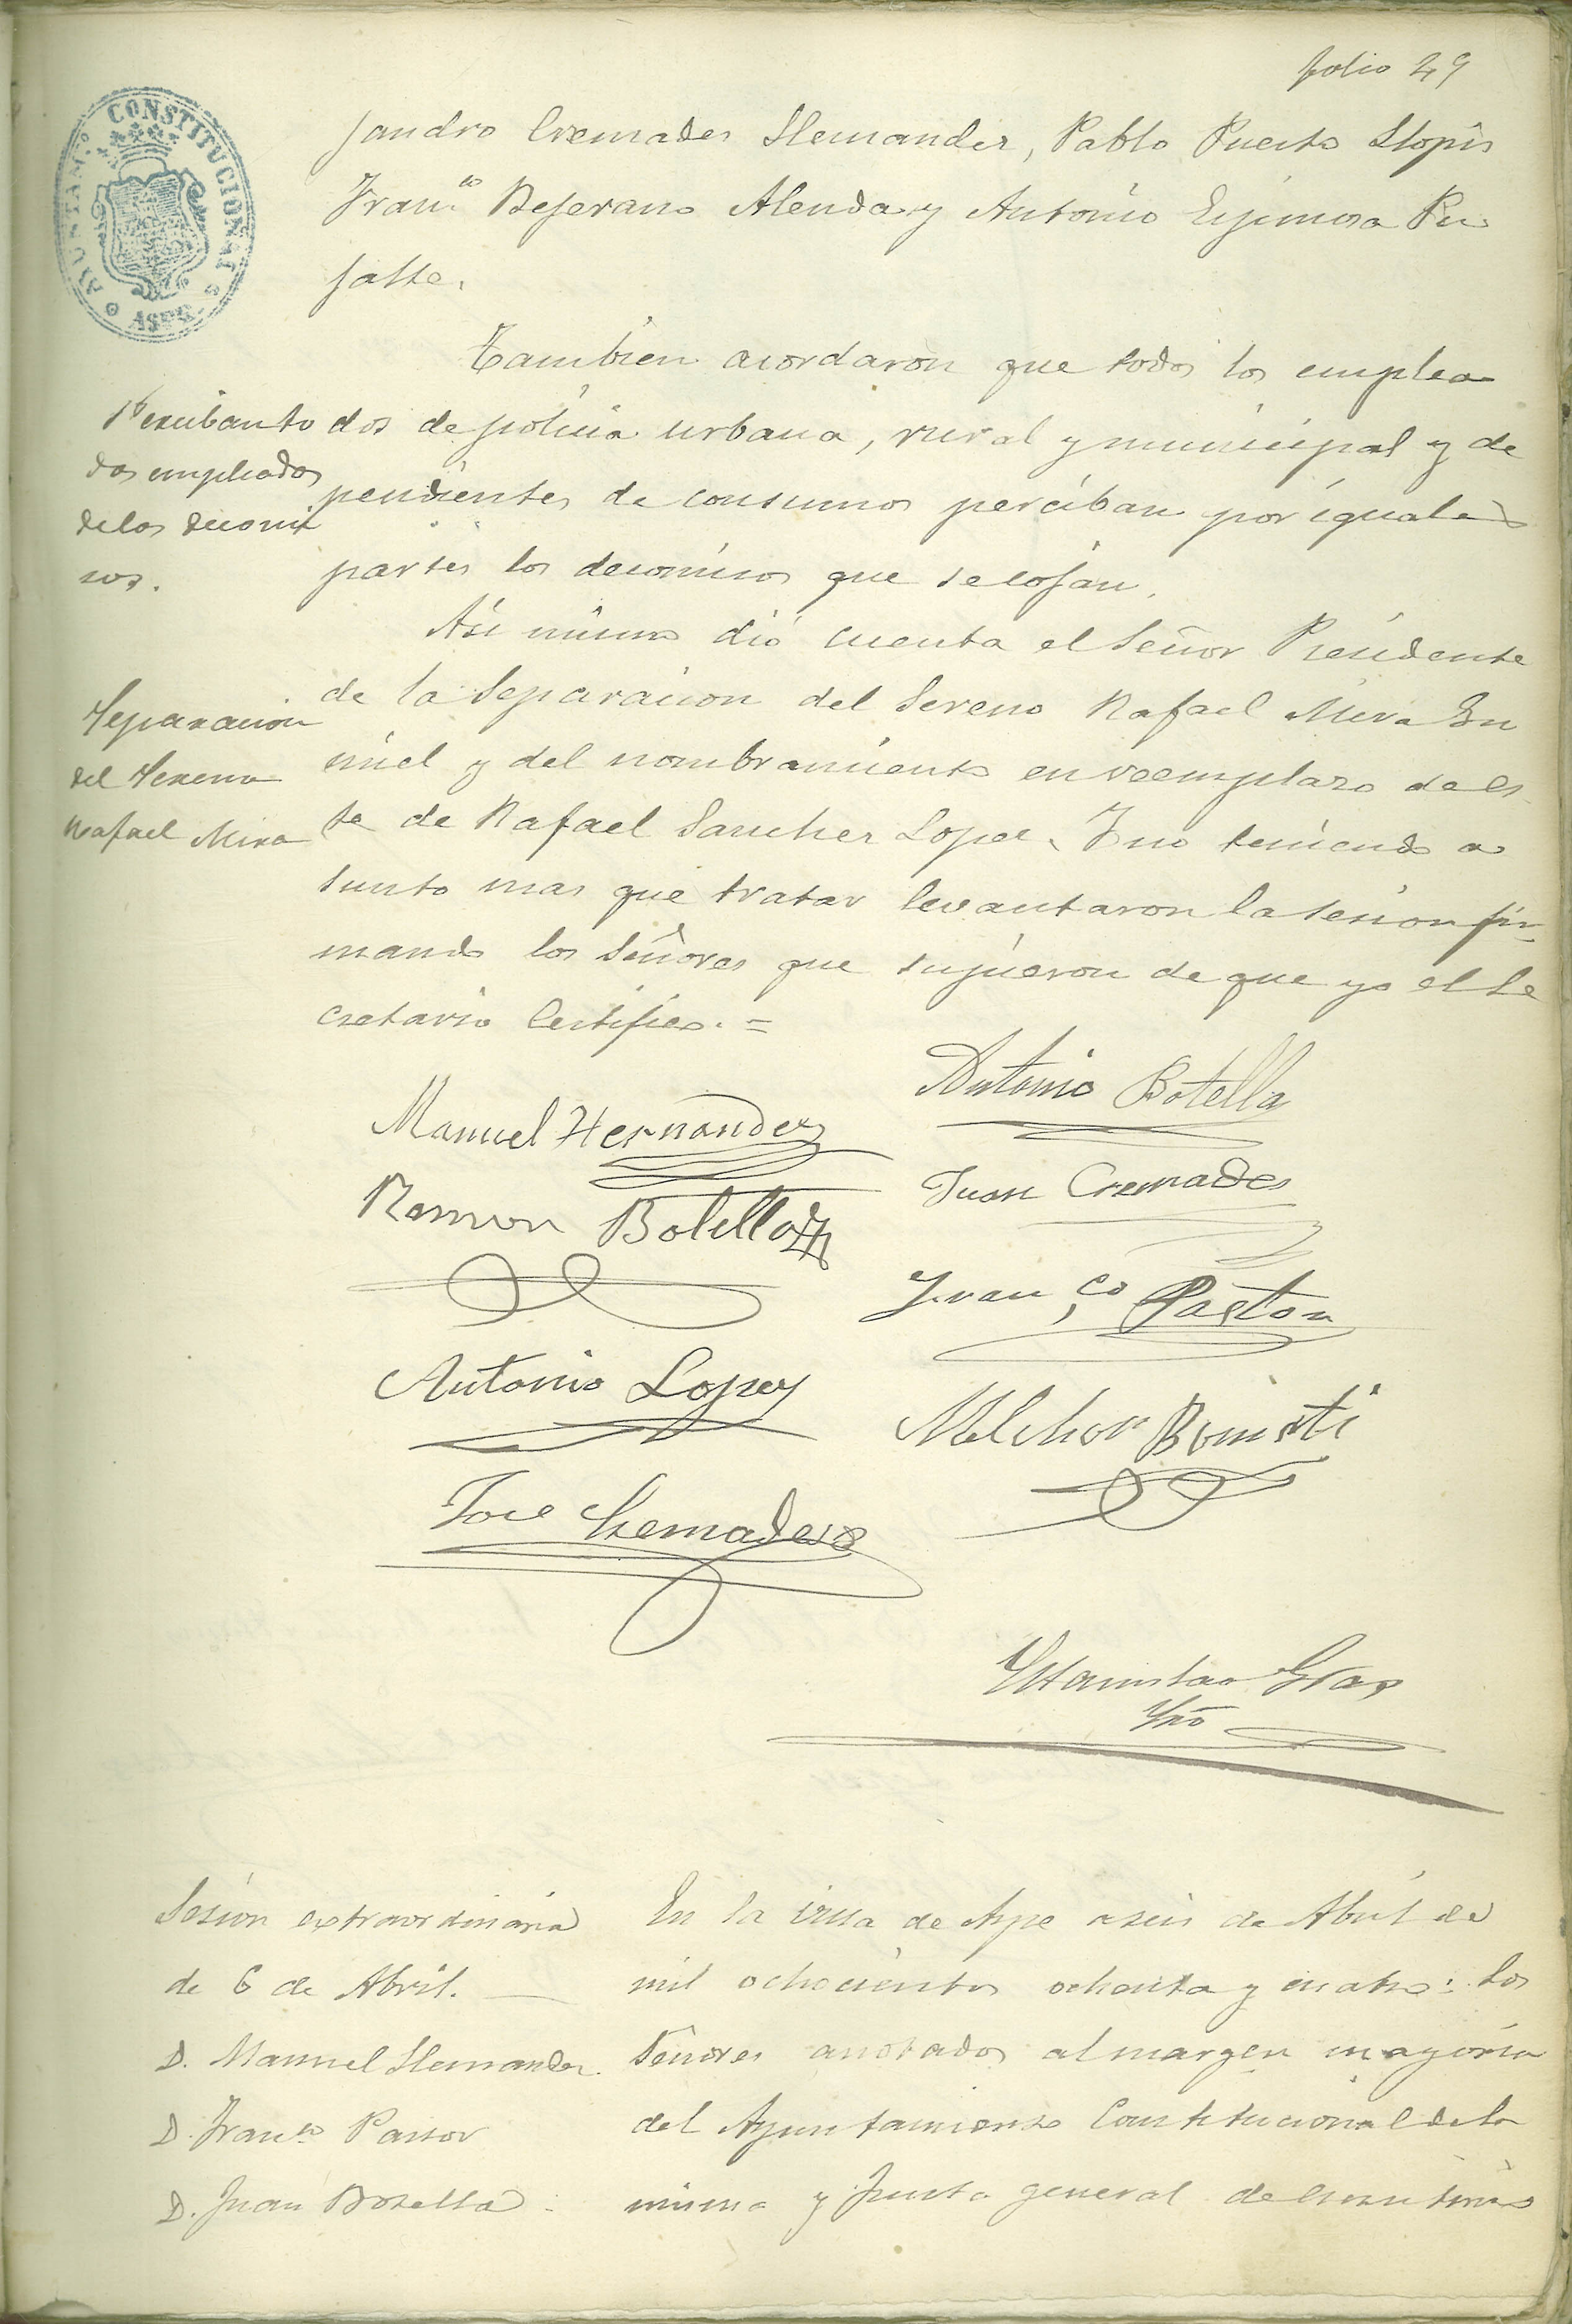 folio 29
AYUNTAM.º CONSTITUCIONAL
ASPE
jandro Cremades Hernandez, Pablo Puerto Llopis
Franco Bejerano Alenda y Antonio Espinosa Pu
jalte.
Tambien acordaron que todos los emplea
Perciban to
dos empleados
de los decomi
sos.
dos de policia urbana, rural y municipal y de
pendientes de consumos perciban por iguales
partes los decomisos que se cojan.
Asi mismo dió cuenta el Señor Presidente
Separacion
del Sereno
Rafael Mira
de la Separacion del Sereno Rafael Mira Gu
miel y del nombramiento en reemplazo de es
te de Rafael Sanchez Lopez. Y no teniendo a
sunto mas que tratar levantaron la sesion fir
mando los Señores que supieron de que yo el Se
cretario Certifico. =
Antonio Botella
Manuel Hernandez
Juan Cremades
Ramon Botella
Franco Pastor
Antonio Lopez
Melchor
Jose Cremades
Estanislao Gras
Srio
Sesion extraordinaria
de 6 de Abril.
D. Manuel Hernandez.
D. Franco Pastor
D. Juan Botella
En la villa de Aspe a seis de Abril de
mil ochocientos ochenta y cuatro: los
Señores anotados al margen mayoria
del Ayuntamiento Constitucional de la
misma y Junta general de